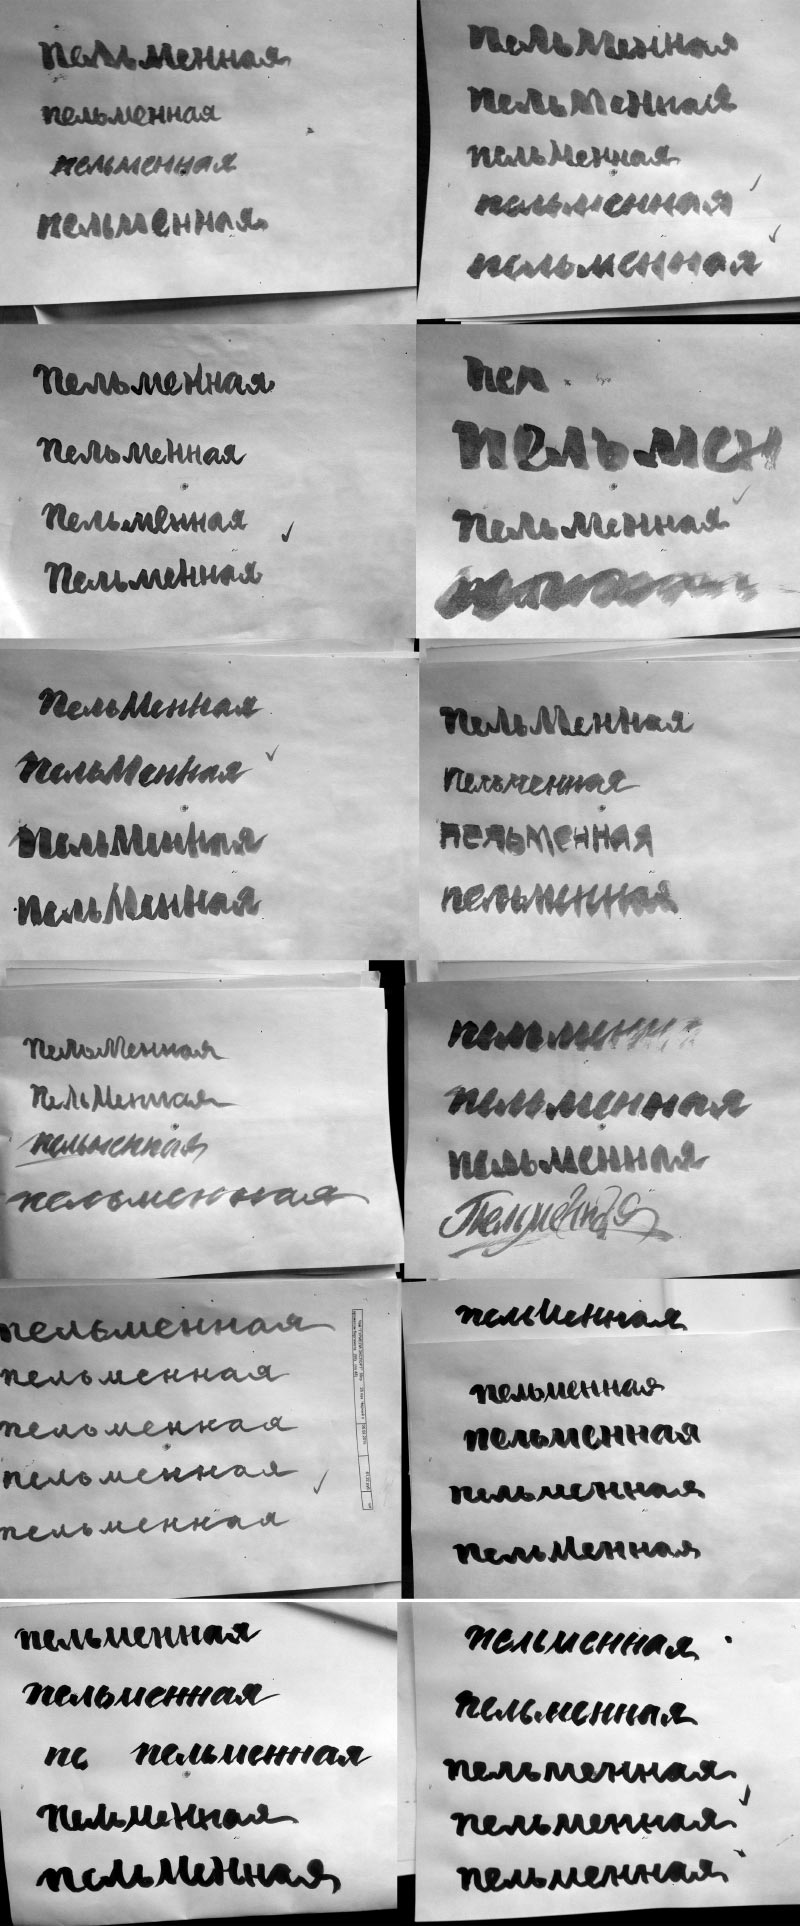 пельменная
пельменная
пельменная
пельменная
пельменная
пельменная
пельменная
пельменная
пельменная
пельменная
пельменная
пельменная
пельменная
пел
пельмен
пельменная
пельменная
пельменная
пельменная
пельменная
пельменная
пельменная
пельменная
пельменная
пельменная
пельменная
пельменная
пельменная
пельменн
пельменная
пельменная
Пельменная
пельменная
пельменная
пельменная
пельменная
пельменная
пельменная
пельменная
пельменная
пельменная
пельменная
пельменная
пельменная
пе пельменная
пельменная
пельменная
пельменная
пельменная
пельменная
пельменная
пельменная